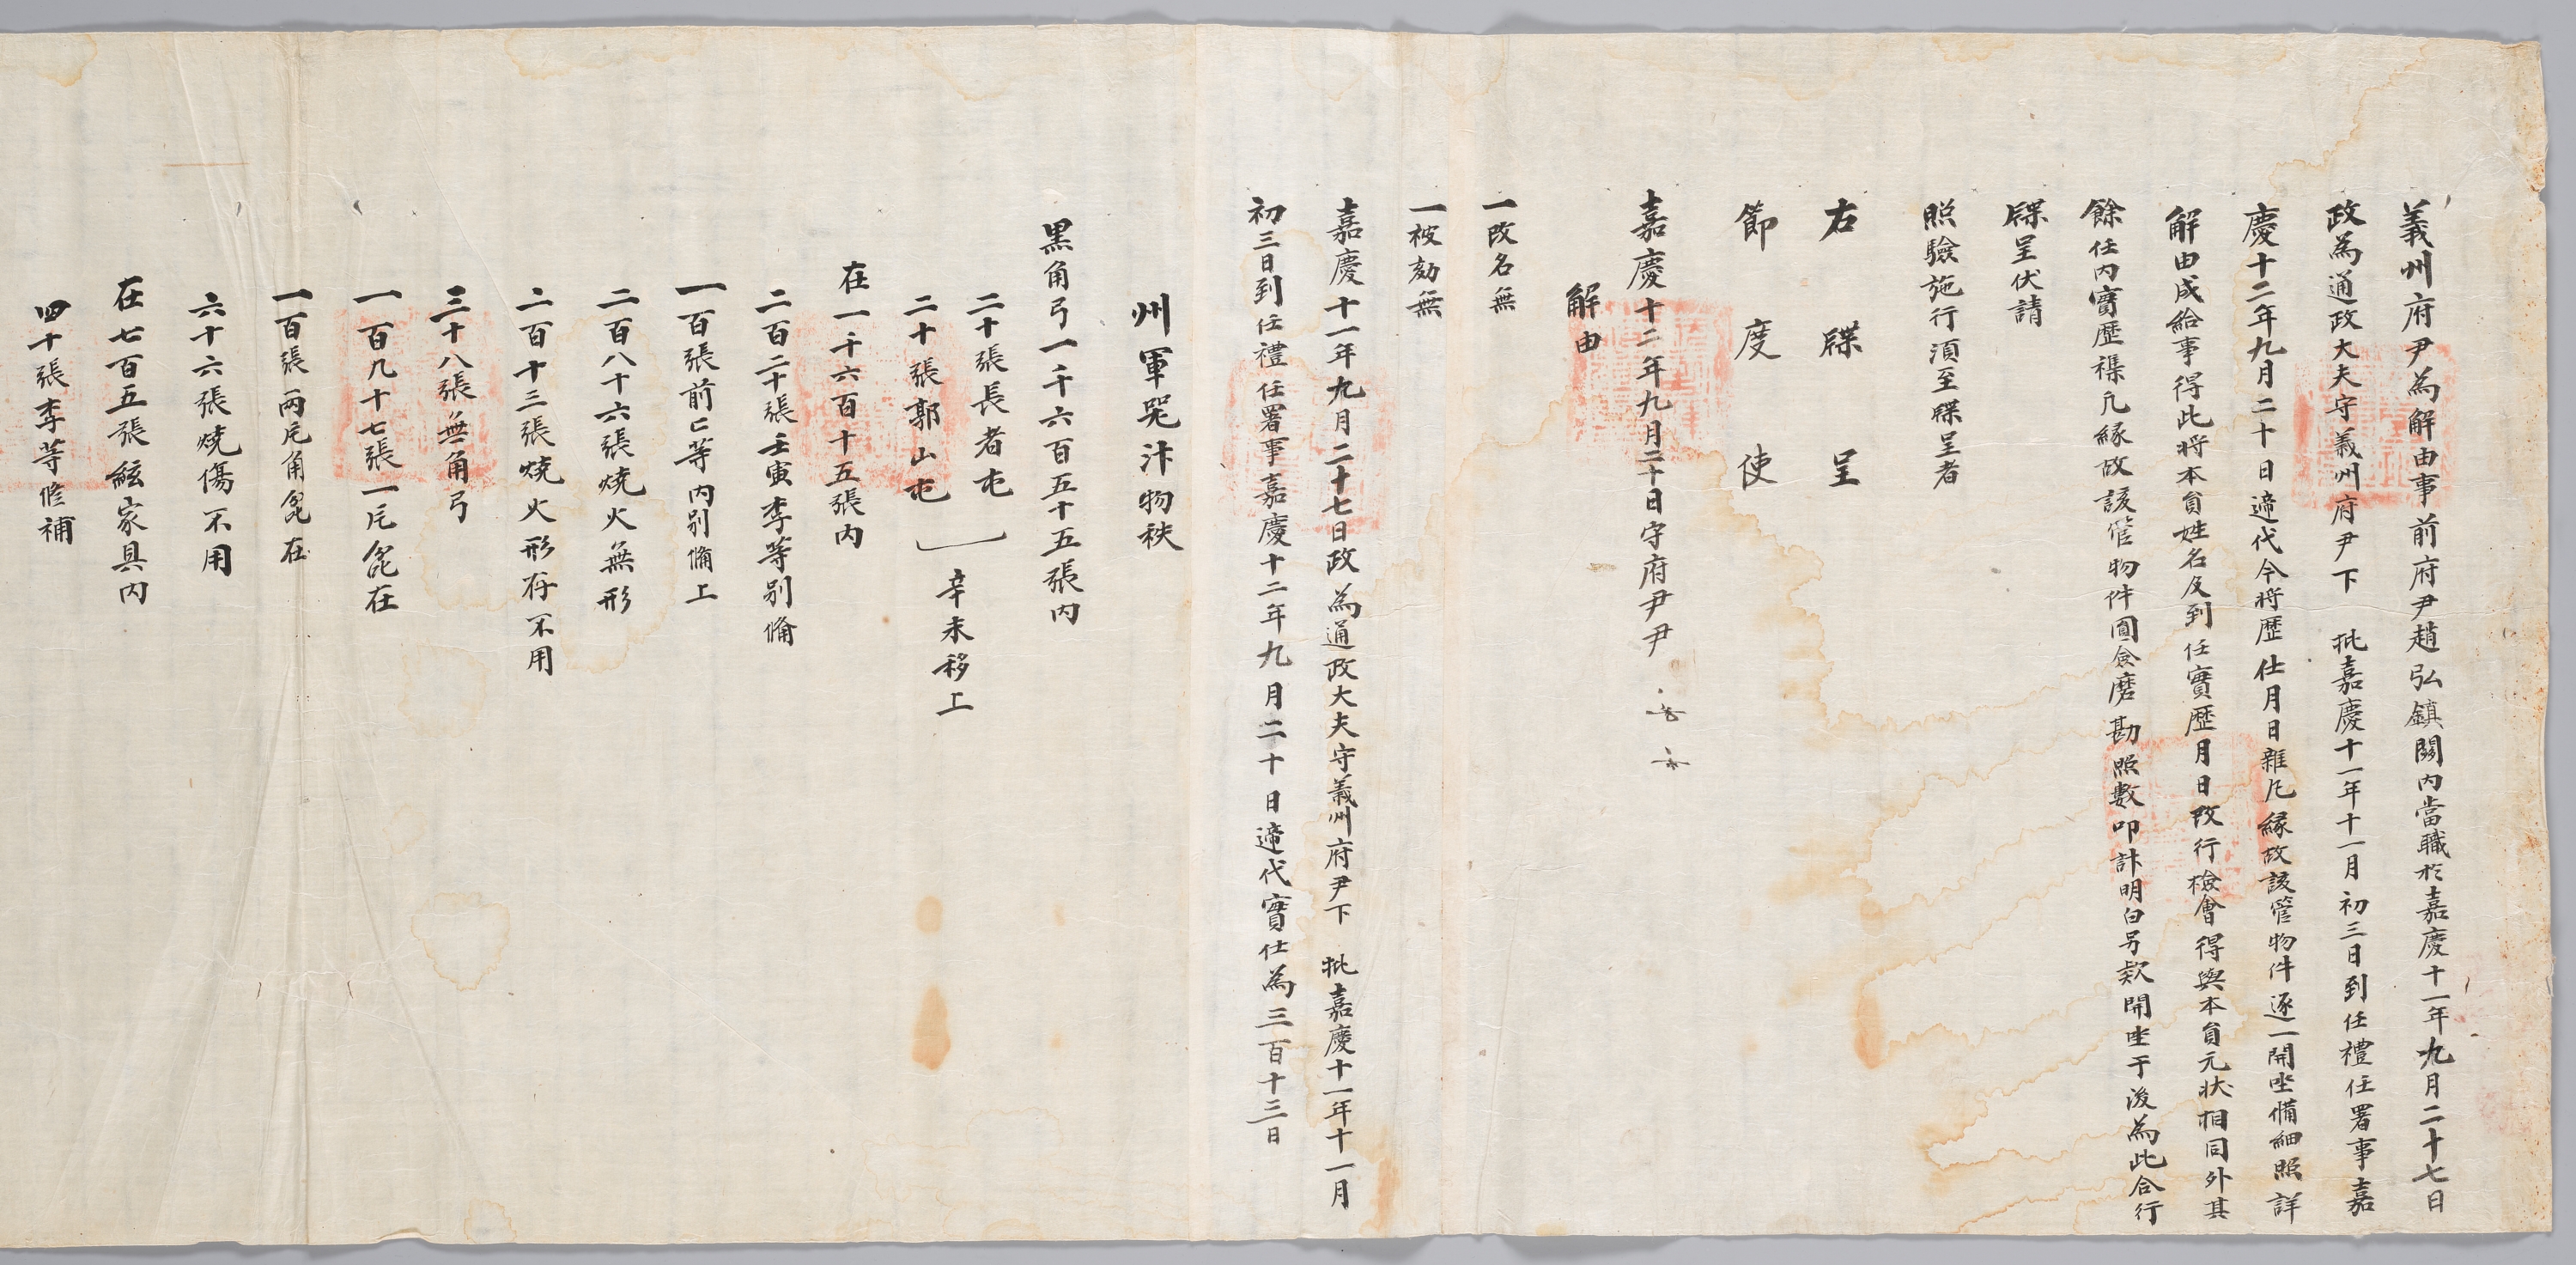 義州府尹為解由事前府尹趙弘鎮關內當職於嘉慶十一年九月二十七日
政為通政大夫守義州府尹下 批嘉慶十一年十一月初三日到任禮任署事嘉
慶十二年九月二十日遞代今將歷仕月日雜凡緣故該管物件逐一開坐備細照詳
解由成給事得此將本員姓名及到任實歷月日改行檢會得與本員元狀相同外其
餘任內實歷襍凡緣故該管物件圓僉磨勘照數叩計明白另款開坐于後為此合行
牒呈伏請
照驗施行湏至牒呈者
右牒呈
節度使
嘉慶十二年九月二十日守府尹尹
解由
一改名無
一被劾無
嘉慶十一年九月二十七日政為通政大夫守義州府尹下 批嘉慶十一年十一月
初三日到任禮任署事嘉慶十二年九月二十日遞代實仕為三百十三日
州軍器汁物秩
黑角弓一千六百五十五張內
二十張長者屯
二十張郭山屯
辛未移上
在一千六百十五張內
二百二十張壬寅李等別備
一百張前巳等內別備上
二百八十六張燒火無形
二百十三張燒火形存不用
三十八張無角弓
一百九十七張一片角在
一百張兩片角在
六十六張燒傷不用
在七百五張絃家具內
四十張李等修補